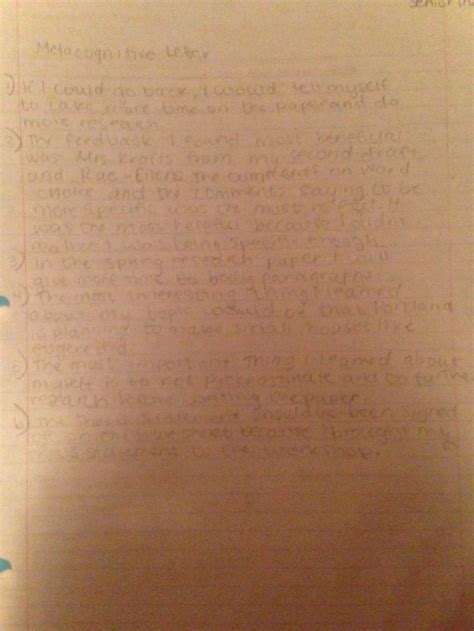 Senior In
Metacognitive Letter
1) If I could go back, I would tell myself
to take more time on the paper and do
more research
The feedback I found most beneficial
was Mrs. Krafts from my second draft
and Rae-Ellens the comments on word
choice and the comments saying to be
more specific was the most helpful. It
was the most helpful because I didnt
realize I wasn't being specific enough.
3) In the spring research paper I will
give more time to body paragraphs.
4) The most interesting thing I learned
about my topic would be that Portland
is planning to make small houses like
eugene did.
5) The most important thing I learned about
myself is to not procrastinate and to further
research before writing the paper.
6) The thesis statement should've been signed
off on the blue sheet because I brought my
thesis statement to the workshop.